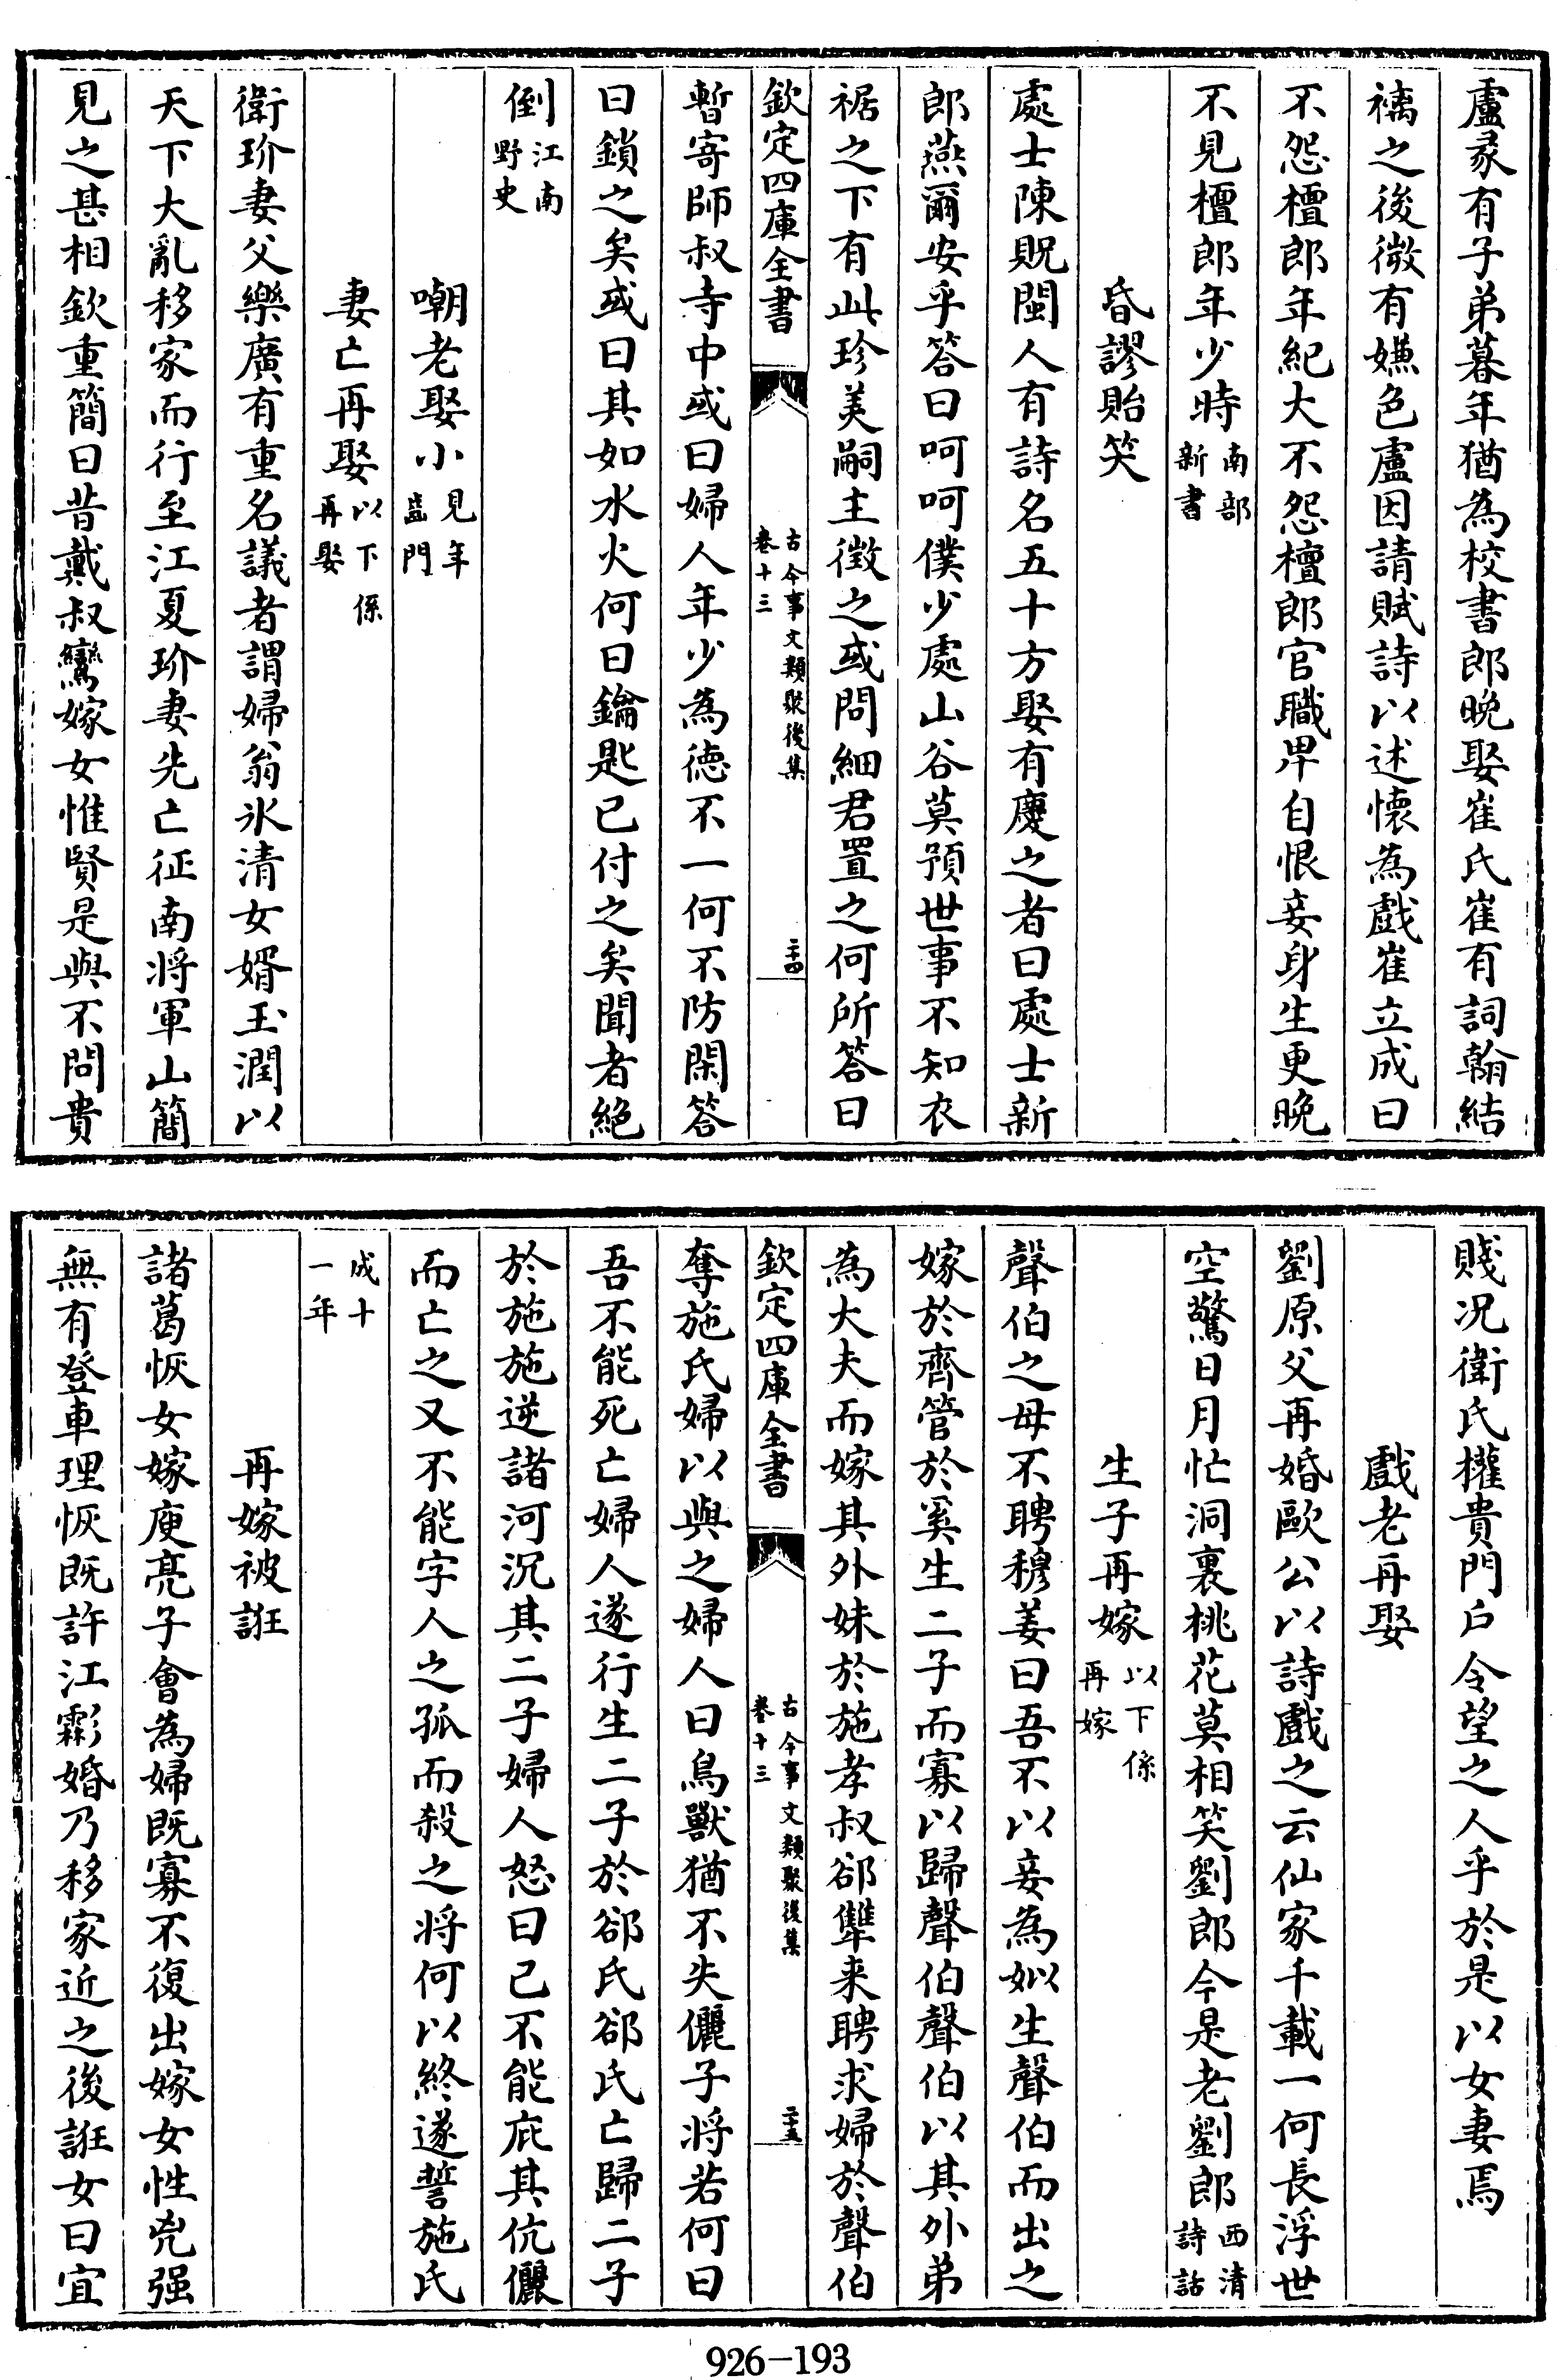 盧彖有子弟暮年猶為校書郎晚娶崔氏崔有詞翰結
褵之後微有嫌色盧因請賦詩以述懷為戲崔立成曰
不怨檀郎年紀大不怨檀郎官職卑自恨妾身生更晚
不見檀郎年少時南部新書
昏謬貽笑
處士陳貺閩人有詩名五十方娶有慶之者曰處士新
郎燕爾安乎答曰呵呵僕少處山谷莫預世事不知衣
裾之下有此珍美嗣主徵之或問細君置之何所答曰
欽定四庫全書
古今事文類聚後集
卷十三
二十四
暫寄師叔寺中或曰婦人年少為德不一何不防閑答
曰鎖之矣或曰其如水火何曰鑰匙已付之矣聞者絕
倒江南野史
嘲老娶小見年齒門
妻亡再娶以下係再娶
衛玠妻父樂廣有重名議者謂婦翁氷清女婿玉潤以
天下大亂移家而行至江夏玠妻先亡征南將軍山簡
見之甚相欽重簡曰昔戴叔鸞嫁女惟賢是與不問貴
賤况衛氏權貴門户令望之人乎於是以女妻焉
戲老再娶
劉原父再婚歐公以詩戲之云仙家千載一何長浮世
空驚日月忙洞裏桃花莫相笑劉郎今是老劉郎西清詩話
生子再嫁以下係再嫁
聲伯之母不聘穆姜曰吾不以妾為姒生聲伯而出之
嫁於齊管於奚生二子而寡以歸聲伯聲伯以其外弟
為大夫而嫁其外妹於施孝叔郤犫来聘求婦於聲伯
欽定四庫全書
古今事文類聚後集
卷十三
二十五
奪施氏婦以與之婦人曰鳥獸猶不失儷子將若何曰
吾不能死亡婦人遂行生二子於郤氏郤氏亡歸二子
於施施逆諸河沉其二子婦人怒曰已不能庇其伉儷
而亡之又不能字人之孤而殺之將何以終遂誓施氏
成十一年
再嫁被誑
諸葛恢女嫁庾亮子會為婦既寡不復出嫁女性兇强
無有登車理恢既許江虨婚乃移家近之後誑女曰宜
926-193